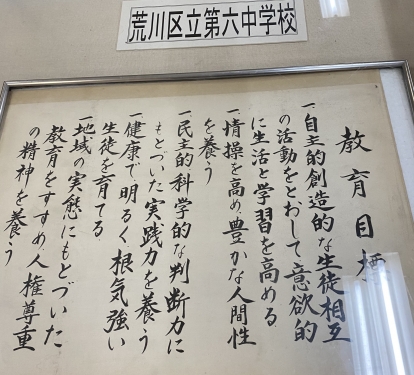 荒川区立第六中学校
教育目標
一、自主的創造的な生徒相互
の活動をとおして意欲的
に生活と学習を高める
一、情操を高め、豊かな人間性
を養う
一、民主的科学的な判断力に
もとづいた実践力を養う
一、健康で明るく根気強い
生徒を育てる
一、地域の実態にもとづいた
教育をすすめ、人権尊重
の精神を養う